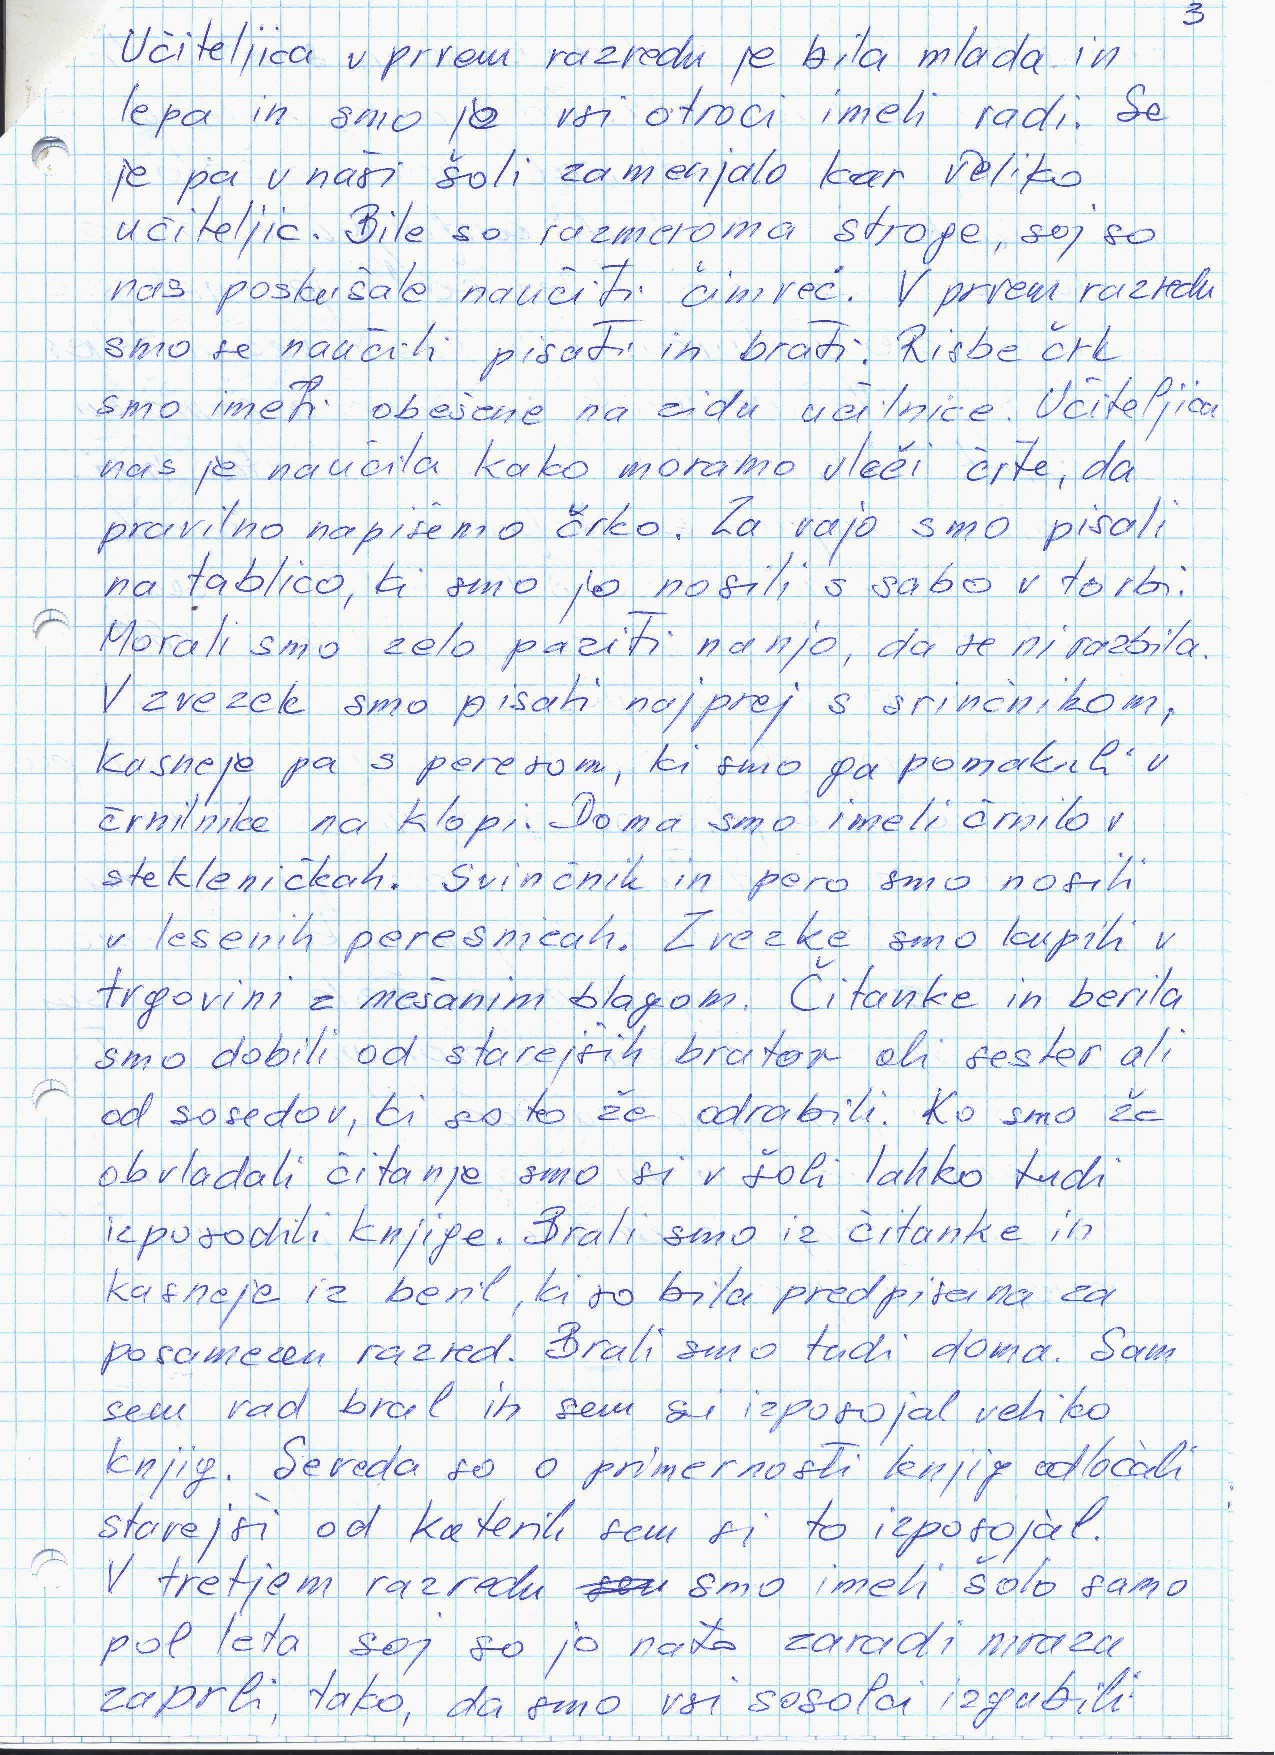 3
Učiteljica v prvem razredu je bila mlada in
lepa in smo jo vsi otroci imeli radi. Se
je pa v naši šoli zamenjalo kar veliko
učiteljic. Bile so razmeroma stroge, saj so
nas poskušale naučiti čimveč. V prvem razredu
smo se naučili pisati in brati. Risbe črk
smo imeli obešene na zidu učilnice. Učiteljica
nas je naučila kako moramo vleči črte, da
pravilno napišemo črko. Za vajo smo pisali
na tablico, ki smo jo nosili s sabo v torbi.
Morali smo zelo paziti nanjo, da se ni razbila.
V zvezek smo pisali najprej s srinčnikom,
kasneje pa s peresom, ki smo ga pomakali v
črnilnike na klopi. Doma smo imeli črnilo v
stekleničkah. Svinčnik in pero smo nosili
v lesenih peresnicah. Zvezke smo kupili v
trgovini z mešanim blagom. Čitanke in berila
smo dobili od starejših bratov ali sester ali
od sosedov, ki so to že odrabili. Ko smo že
obvladali čitanje smo si v šoli lahko tudi
izposodili knjige. Brali smo iz čitanke in
kasneje iz beril, ki so bila predpisana za
posamezen razred. Brali smo tudi doma. Sam
sem rad bral in sem si izposojal veliko
knjig. Seveda so o primernosti knjig odločali
starejši od katerih sem si to izposojal.
V tretjem razredu smo imeli šolo samo
pol leta saj so jo nato zaradi mraza
zaprli, tako, da smo vsi sošolci izgubili